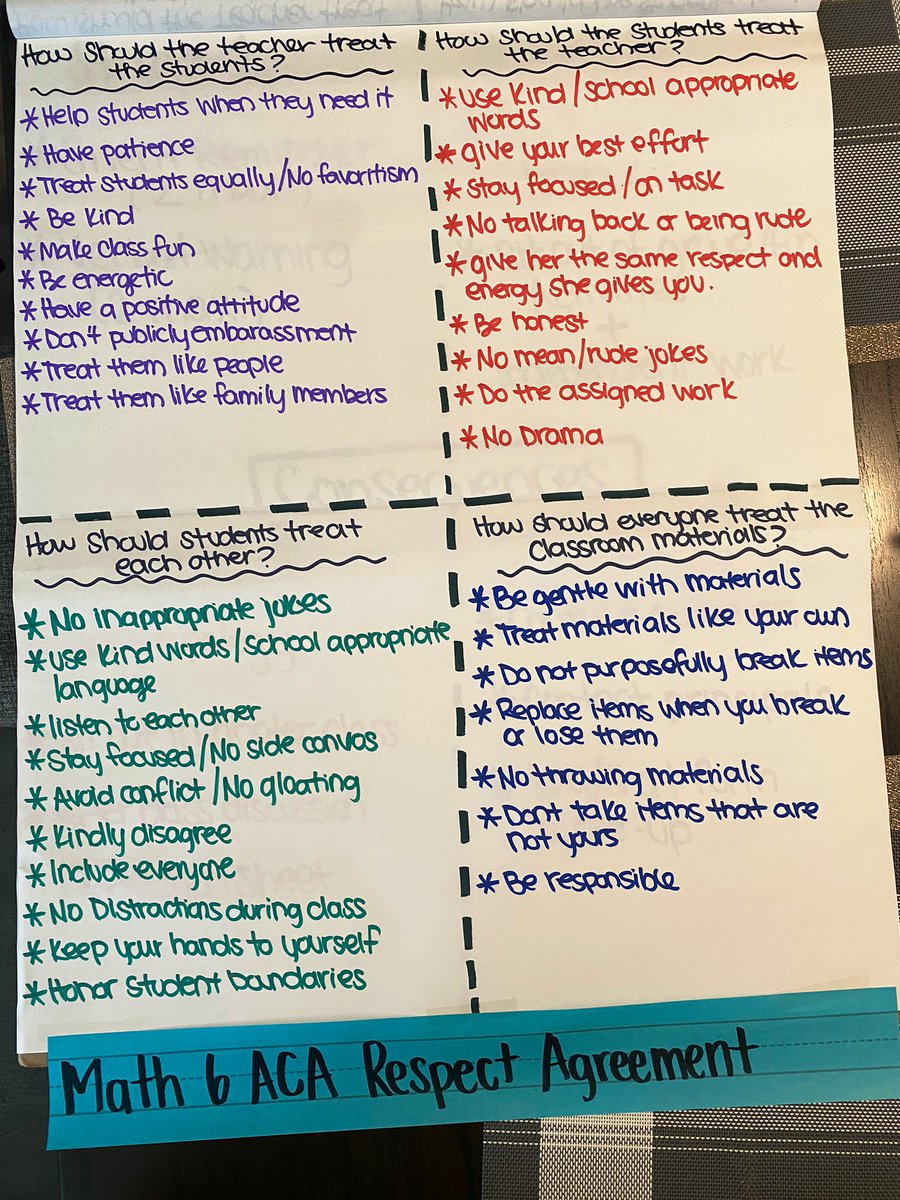 How should the teacher treat
the students?
*Help students when they need it
*Have patience
*Treat students equally/No favoritism
*Be kind
*Make class fun
*Be energetic
*Have a positive attitude
*Don't publicly embarassment
*Treat them like people
*Treat them like family members
How should the students treat
the teacher?
*Use kind/school appropriate
words
*give your best effort
*Stay focused/on task
*No talking back or being rude
*give her the same respect and
energy she gives you.
*Be honest
*No mean/rude jokes
*Do the assigned work
*No Drama
How should students treat
each other?
*No inappropriate jokes
*Use kind words/school appropriate
language
*listen to each other
*Stay focused/No side convos
*Avoid conflict/No gloating
*Kindly disagree
*Include everyone
*No Distractions during class
*Keep your hands to yourself
*Honor student boundaries
How should everyone treat the
classroom materials?
*Be gentle with materials
*Treat materials like your own
*Do not purposefully break items
*Replace items when you break
or lose them
*No throwing materials
*Dont take items that are
not yours
*Be responsible
Math 6 ACA Respect Agreement
Consequences